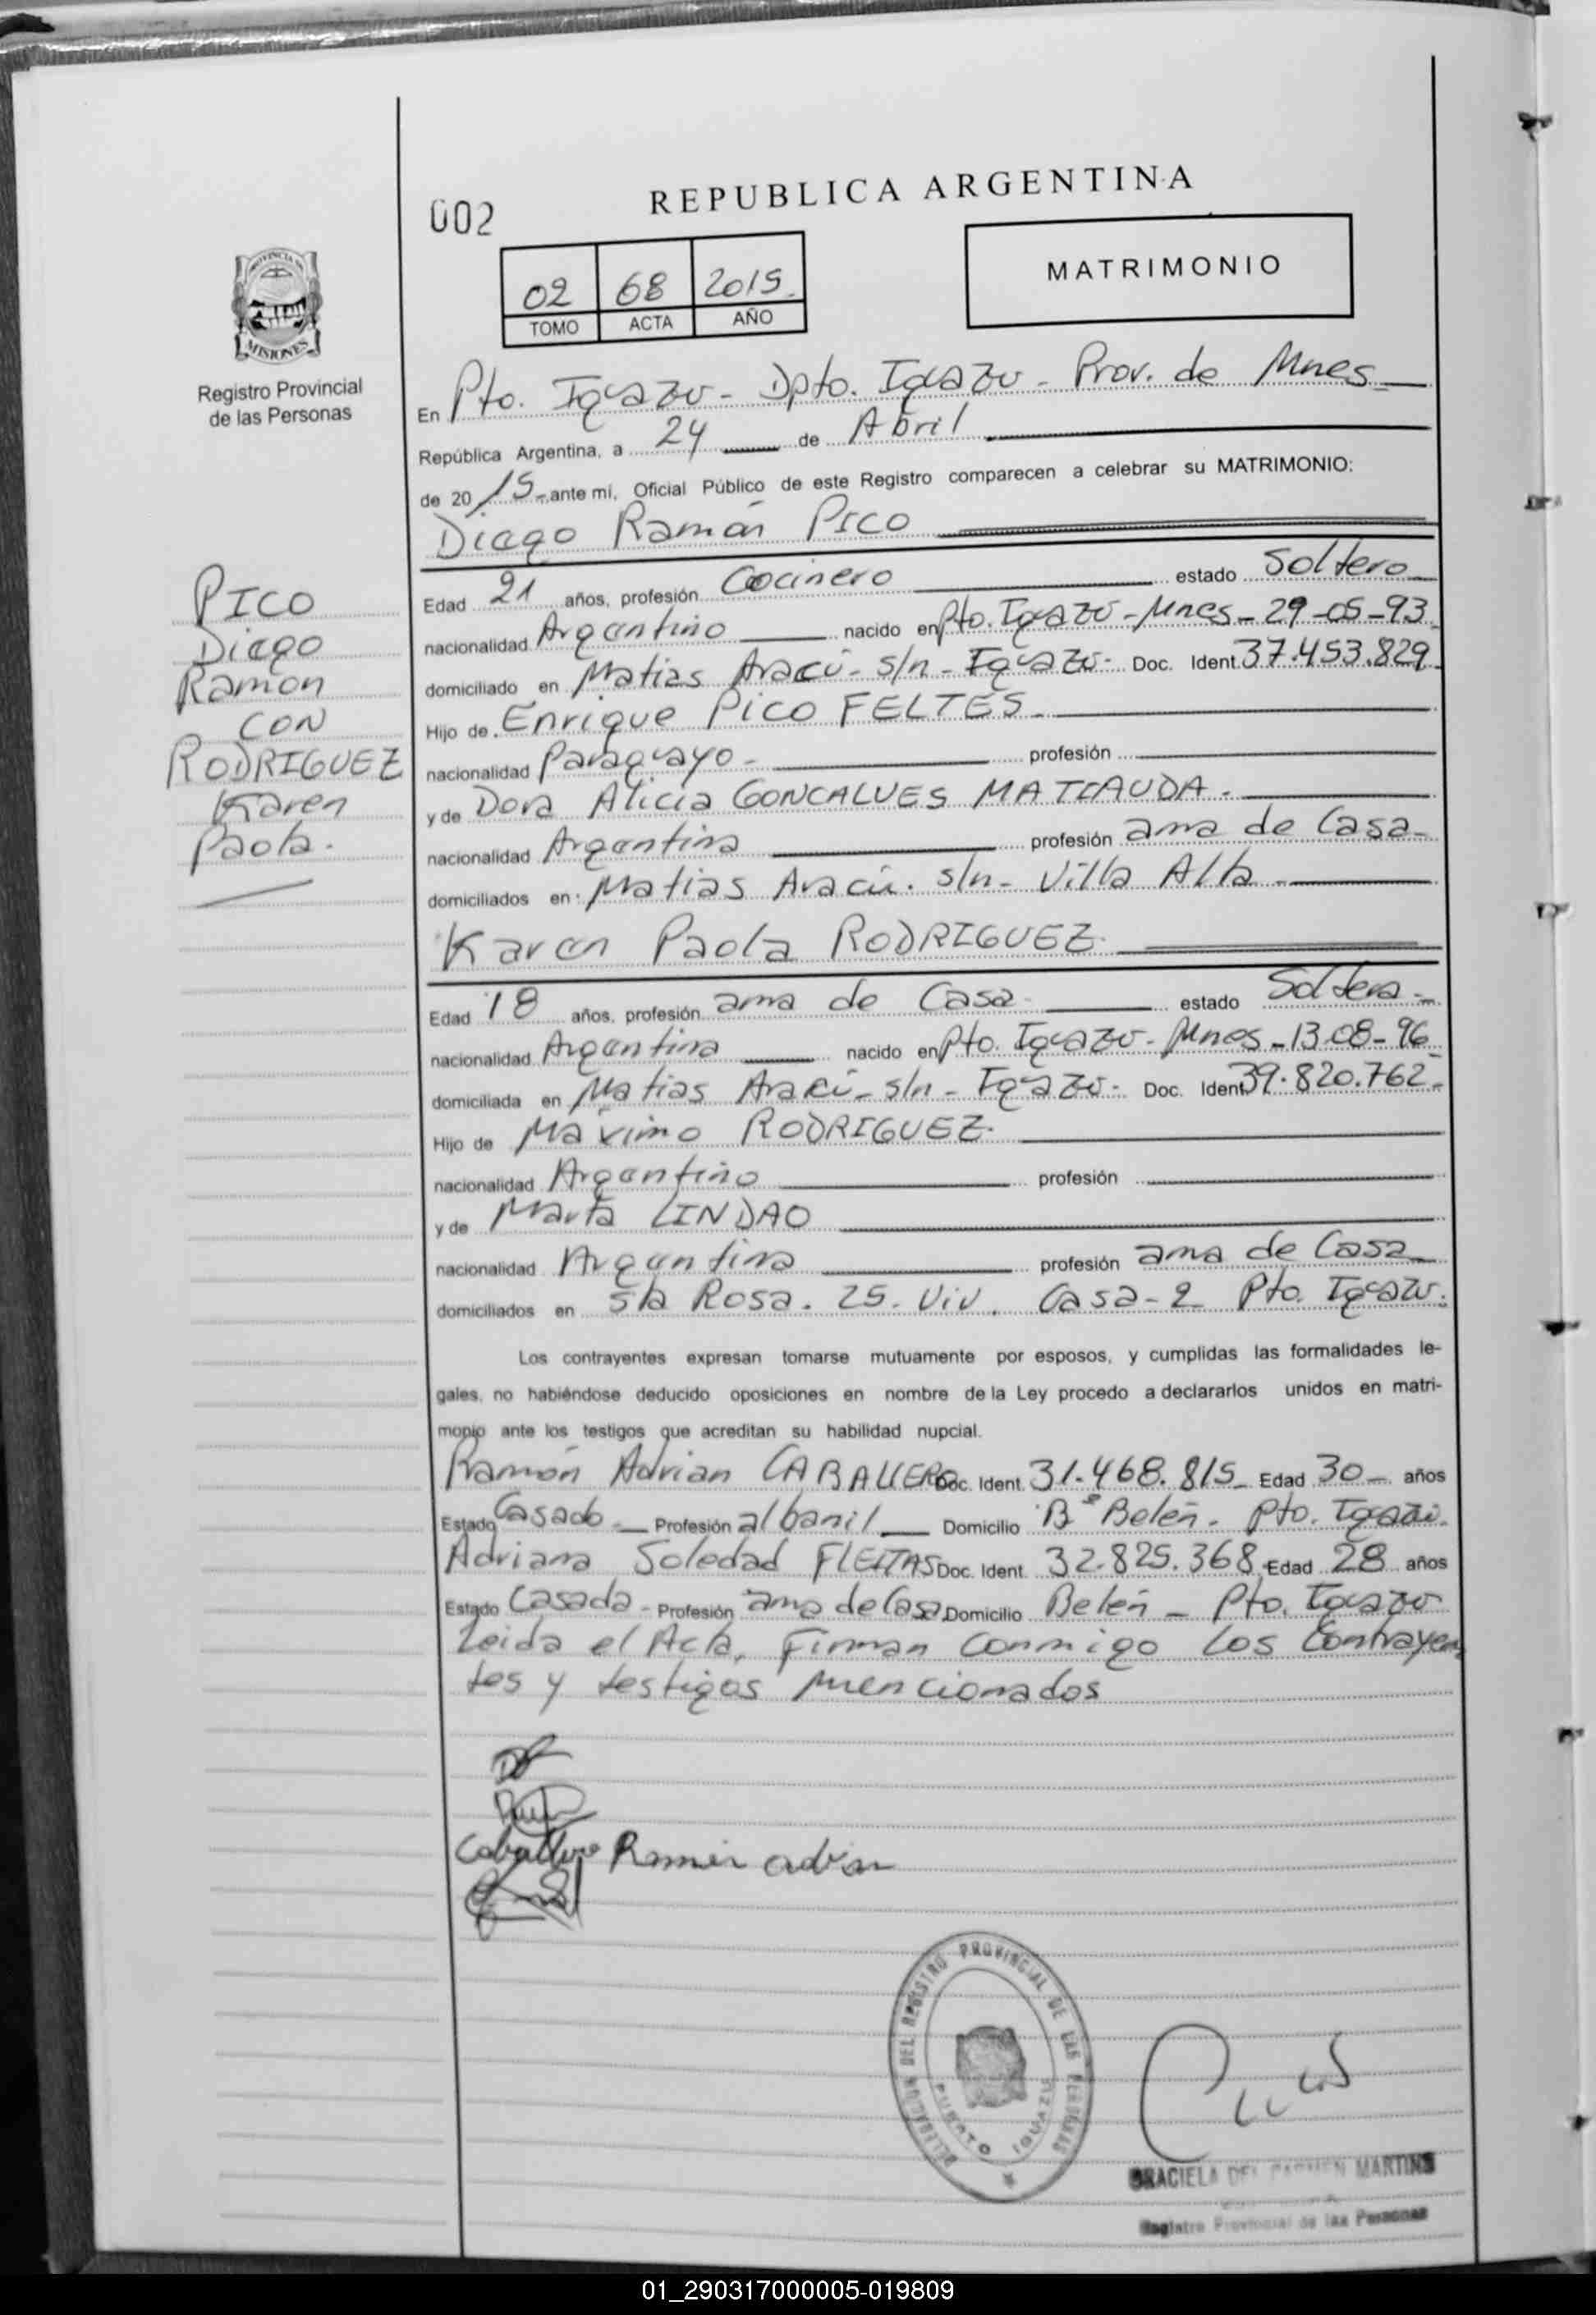 REPUBLICA ARGENTINA
002
02 68 2015
TOMO ACTA AÑO
MATRIMONIO
PROVINCIA DE
MISIONES
Registro Provincial
de las Personas
En Pto. Iguazú - Dpto. Iguazú - Prov. de Mnes
República Argentina, a 24 de Abril
de 20 15 ante mi, Oficial Público de este Registro comparecen a celebrar su MATRIMONIO:
Diego Ramón PICO
PICO
Diego
Ramón
CON
RODRIGUEZ
Karen
Paola.
Edad 21 años, profesión Cocinero estado Soltero
nacionalidad Argentino nacido en Pto. Iguazú - Mnes - 29-05-93
domiciliado en Matias Aracú - s/n - Iguazú - Doc. Ident. 37.453.829
Hijo de Enrique PICO FELTES
nacionalidad Paraguayo - profesión
y de Dora Alicia GONCALVES MATIAUDA -
nacionalidad Argentina profesión ama de Casa
domiciliados en: Matias Aracú. s/n - Villa Alta
Karen Paola RODRIGUEZ
Edad 18 años, profesión ama de Casa estado Soltera -
nacionalidad Argentina nacido en Pto. Iguazú - Mnes - 13-08-96
domiciliada en Matias Aracú - s/n - Iguazú - Doc. Ident. 39.820.762 -
Hijo de Maximo RODRIGUEZ
nacionalidad Argentino profesión
y de Marta LINDAO
nacionalidad Argentina profesión ama de Casa
domiciliados en Sta Rosa. 25. Viv. Casa-2 Pto. Iguazú.
Los contrayentes expresan tomarse mutuamente por esposos, y cumplidas las formalidades le-
gales, no habiéndose deducido oposiciones en nombre de la Ley procedo a declararlos unidos en matri-
monio ante los testigos que acreditan su habilidad nupcial.
Ramón Adrian CABALLERO Doc. Ident. 31.468.815 Edad 30 años
Estado Casado Profesión albanil Domicilio Bº Belén - Pto. Iguazú.
Adriana Soledad FLEITAS Doc. Ident. 32.825.368 Edad 28 años
Estado Casada - Profesión ama de Casa Domicilio Belén - Pto. Iguazú
Leida el Acta, Firman conmigo los Contrayen
tes y testigos mencionados
Caballero Ramón adrian
DELEGACION DEL REGISTRO PROVINCIAL DE LAS PERSONAS
PUERTO IGUAZU
GRACIELA DEL CARMEN MARTINS
Registro Provincial de las Personas
01_290317000005-019809